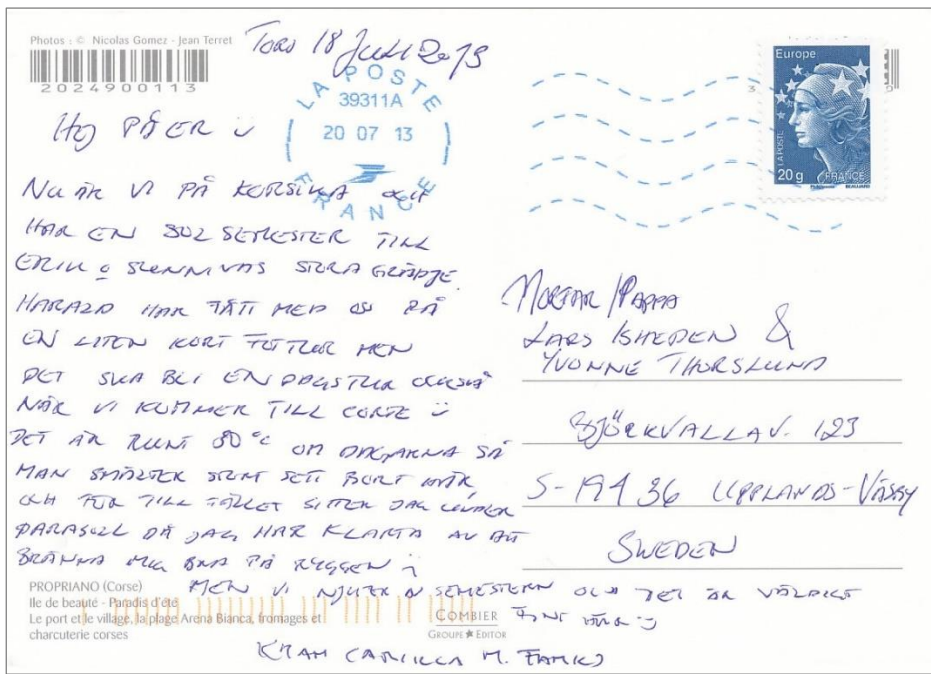 Photos : © Nicolas Gomez - Jean Terret
2024900113
TORS 18 JULI 2013
LA POSTE
39311A
20 07 13
FRANCE
Europe
LA POSTE
20g
FRANCE
HEJ PÅ ER
NU ÄR VI PÅ KORSIKA OCH
HAR EN SOLSEMESTER TILL
ERIK O SUNNIVAS STORA GLÄDJE.
HARALD HAR FÅTT MED OSS PÅ
EN LITEN KORT FOTTUR MEN
DET SKA BLI EN DAGSTUR OCKSÅ
NÄR VI KOMMER TILL CORTE
DET ÄR RUNT 30°C OM DAGARNA SÅ
MAN SMÄLTER STORT SETT BORT HÄR,
OCH FÖR TILLFÄLLET SITTER JAG UNDER
PARASOLL DÅ JAG HAR KLARAT AV ATT
BRÄNNA MIG BRA PÅ RYGGEN
MEN VI NJUTER AV SEMESTERN OCH DET ÄR VÄLDIGT
FINT HÄR
KRAM CAMILLA M. FAMILJ
MORFAR/PAPPA
LARS ISHEDEN &
YVONNE THORSLUND
BJÖRKVALLAV. 123
S-194 36 UPPLANDS-VÄSBY
SWEDEN
PROPRIANO (Corse)
Ile de beauté - Paradis d'été
Le port et le village, la plage Arena Bianca, fromages et
charcuterie corses
COMBIER
GROUPE ★ EDITOR